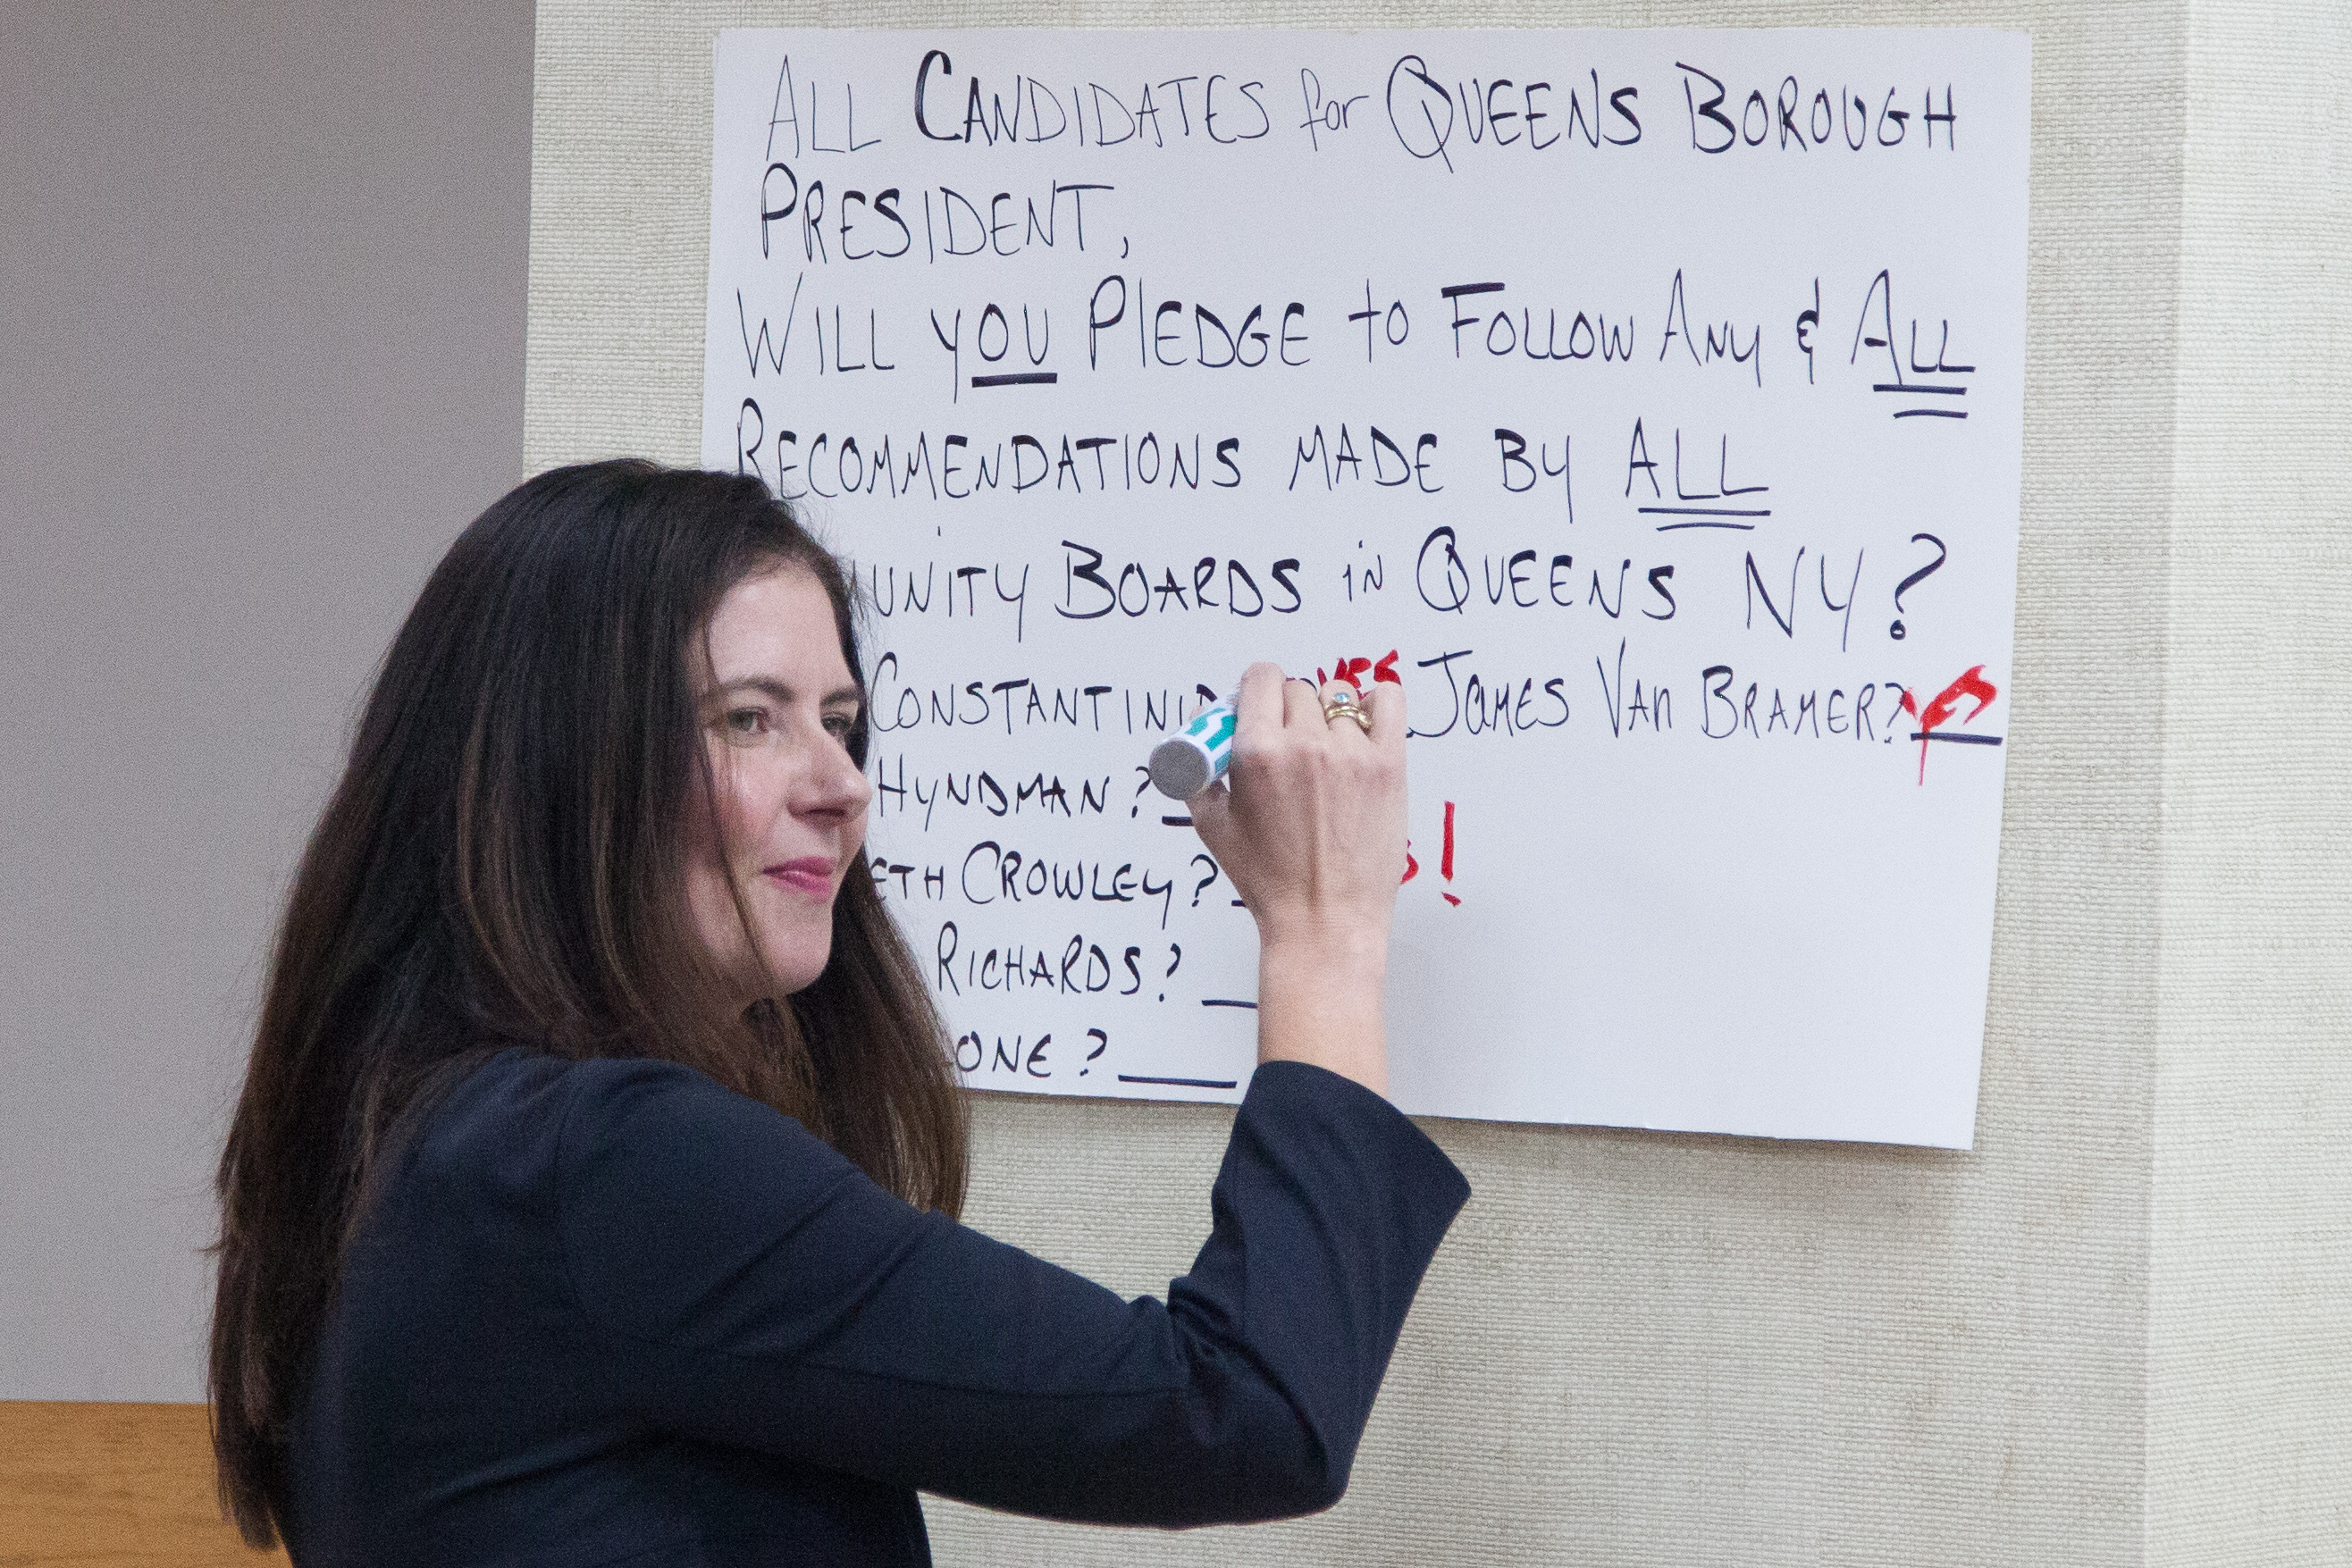 ALL CANDIDATES for QUEENS BOROUGH
PRESIDENT,
WILL YOU PLEDGE to FOLLOW ANY & ALL
RECOMMENDATIONS MADE BY ALL
BOARDS in QUEENS NY?
YES JAMES VAN BRAMER? YES
HYNDMAN?
CROWLEY? !
RICHARDS?